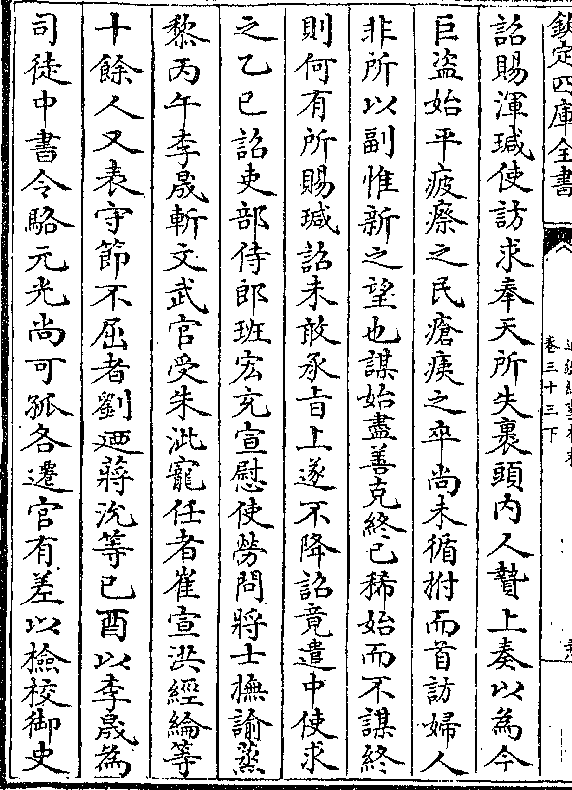 欽定四庫全書
卷三十三下
詔賜渾瑊使訪求奉天所失裹頭内人贄上奏以為今
巨盗始平疲瘵之民瘡痍之卒尚未循拊而首訪婦人
非所以副惟新之望也謀始盡善克終已稀始而不謀終
則何有所賜瑊詔未敢承旨上遂不降詔竟遣中使求
之乙巳詔吏部侍郎班宏充宣慰使勞問將士撫諭蒸
黎丙午李晟斬文武官受朱泚寵任者崔宣洪經綸等
十餘人又表守節不屈者劉廼蔣沇等已酉以李晟為
司徒中書令駱元光尚可孤各遷官有差以檢校御史